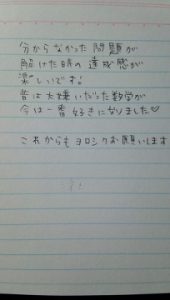 分からなかった問題が
解けた時の達成感が
楽しいです!
昔は大嫌いだった数学が
今は一番好きになりました♡
これからもヨロシクお願いします